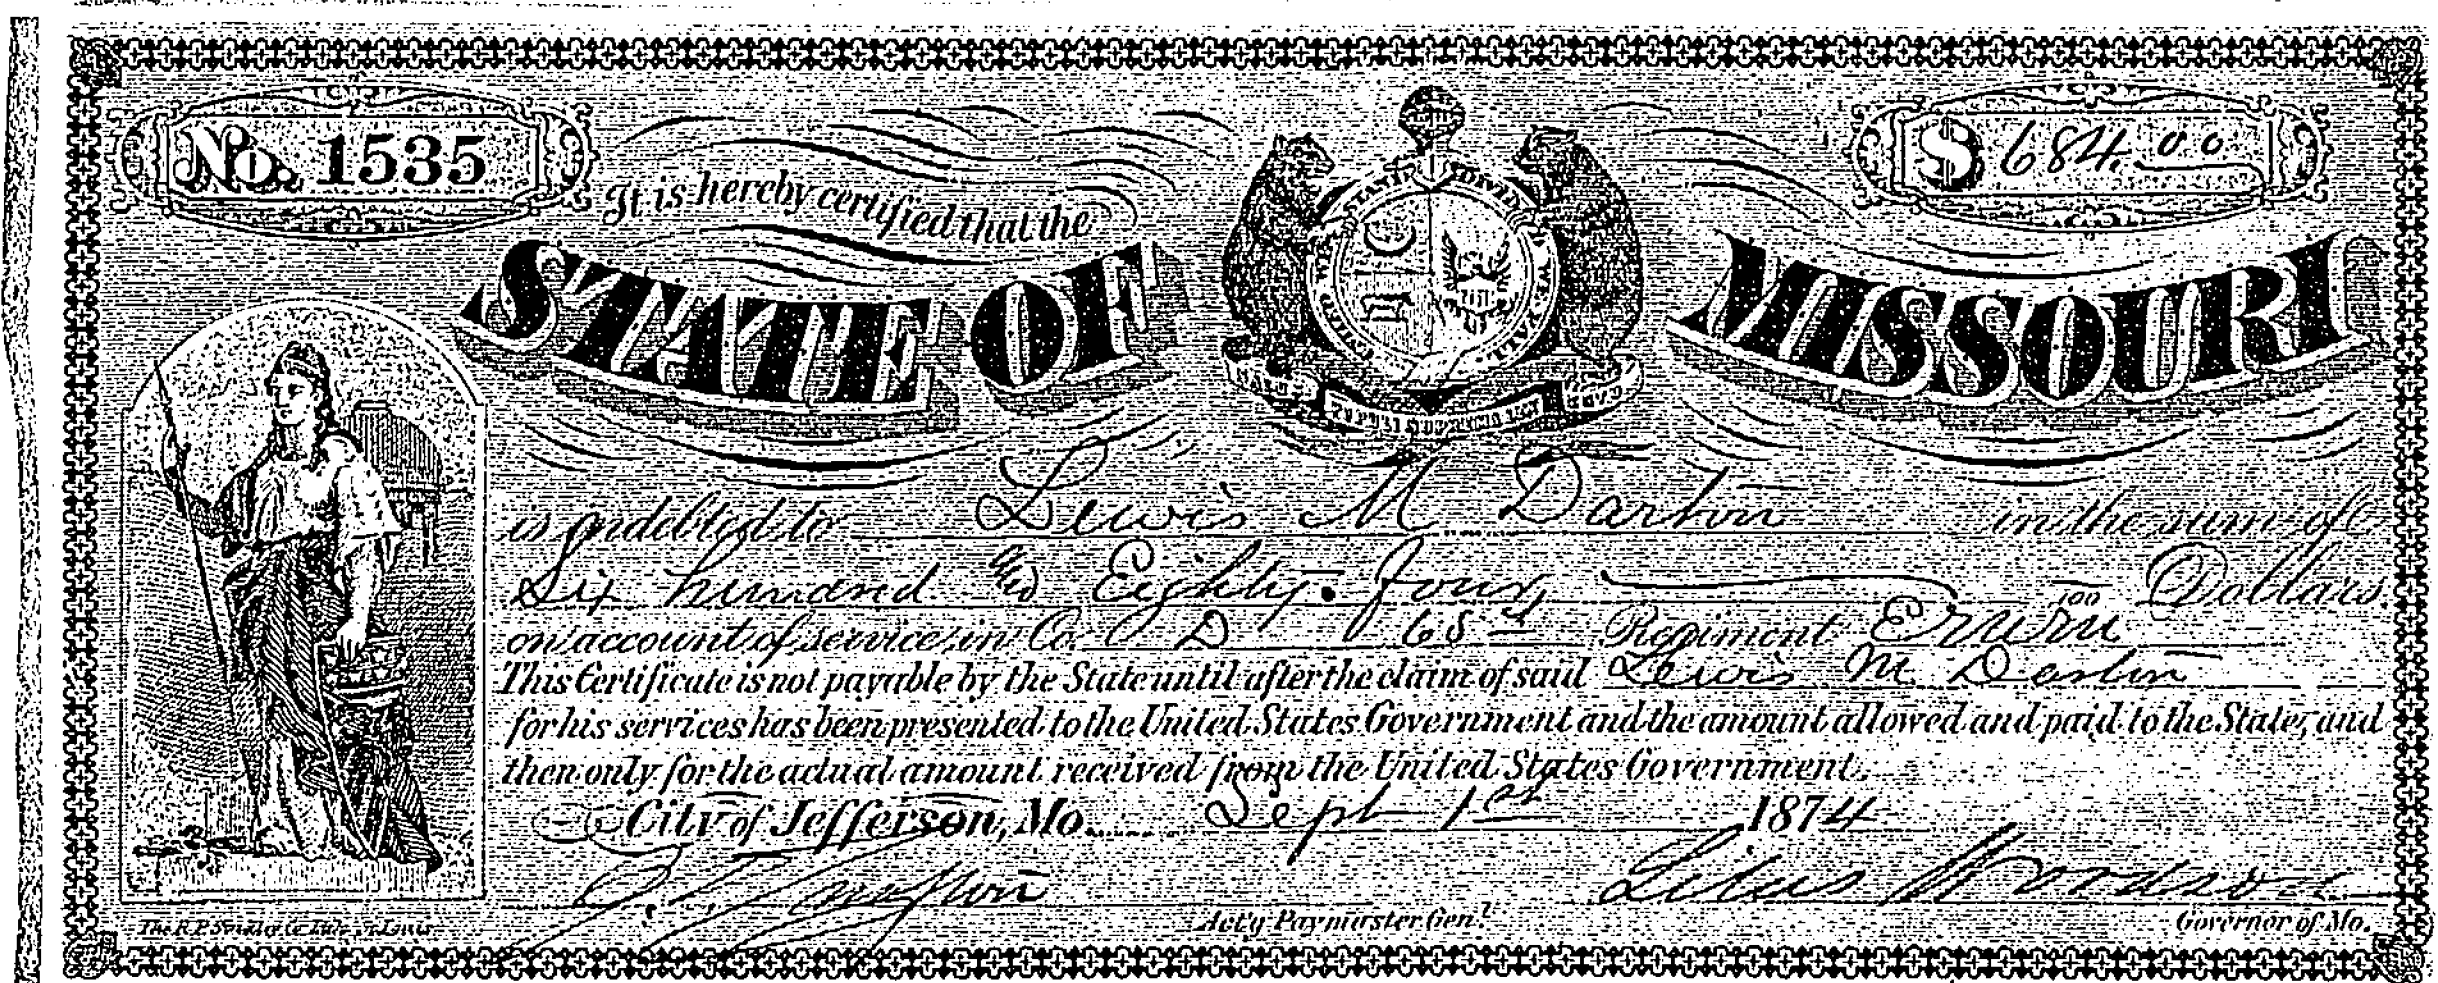 No. 1535
$ 684.00
It is hereby certified that the
STATE OF MISSOURI
is indebted to Lewis M Dartin in the sum of
Six hundred and Eighty-Four, 100 Dollars.
on account of service in Co. D 68 Regiment
This Certificate is not payable by the State until after the claim of said Lewis M Dastin
for his services has been presented to the United States Government and the amount allowed and paid to the State, and
then only for the actual amount received from the United States Government.
City of Jefferson, Mo. Sept 1st 1874
Silas Woodson
Act'g Paymaster Gen'l
Governor of Mo.